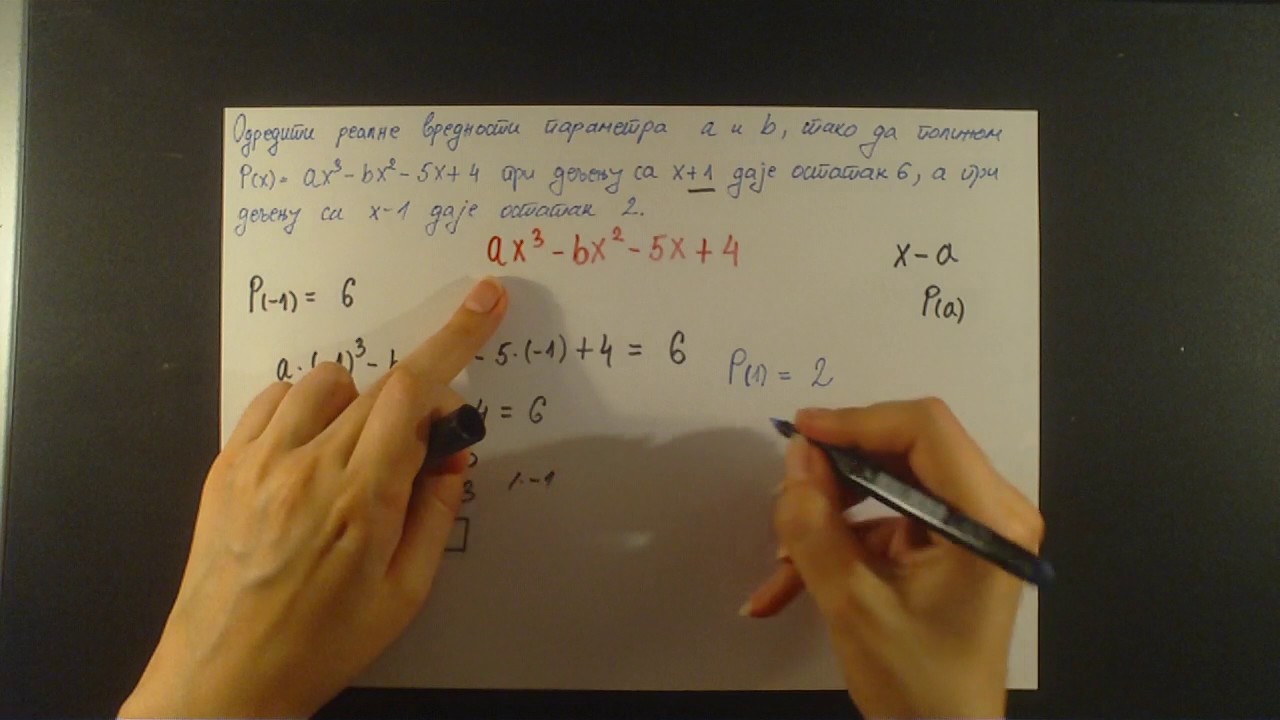 Одредити реалне вредности параметра a и b, тако да полином
P(x) = ax³ - bx² - 5x + 4 при дељењу са x+1 даје остатак 6, а при
дељењу са x-1 даје остатак 2.
ax³ - bx² - 5x + 4
x - a
P(a)
P(-1) = 6
- 5·(-1) + 4 = 6
P(1) = 2
4 = 6
3 /·-1